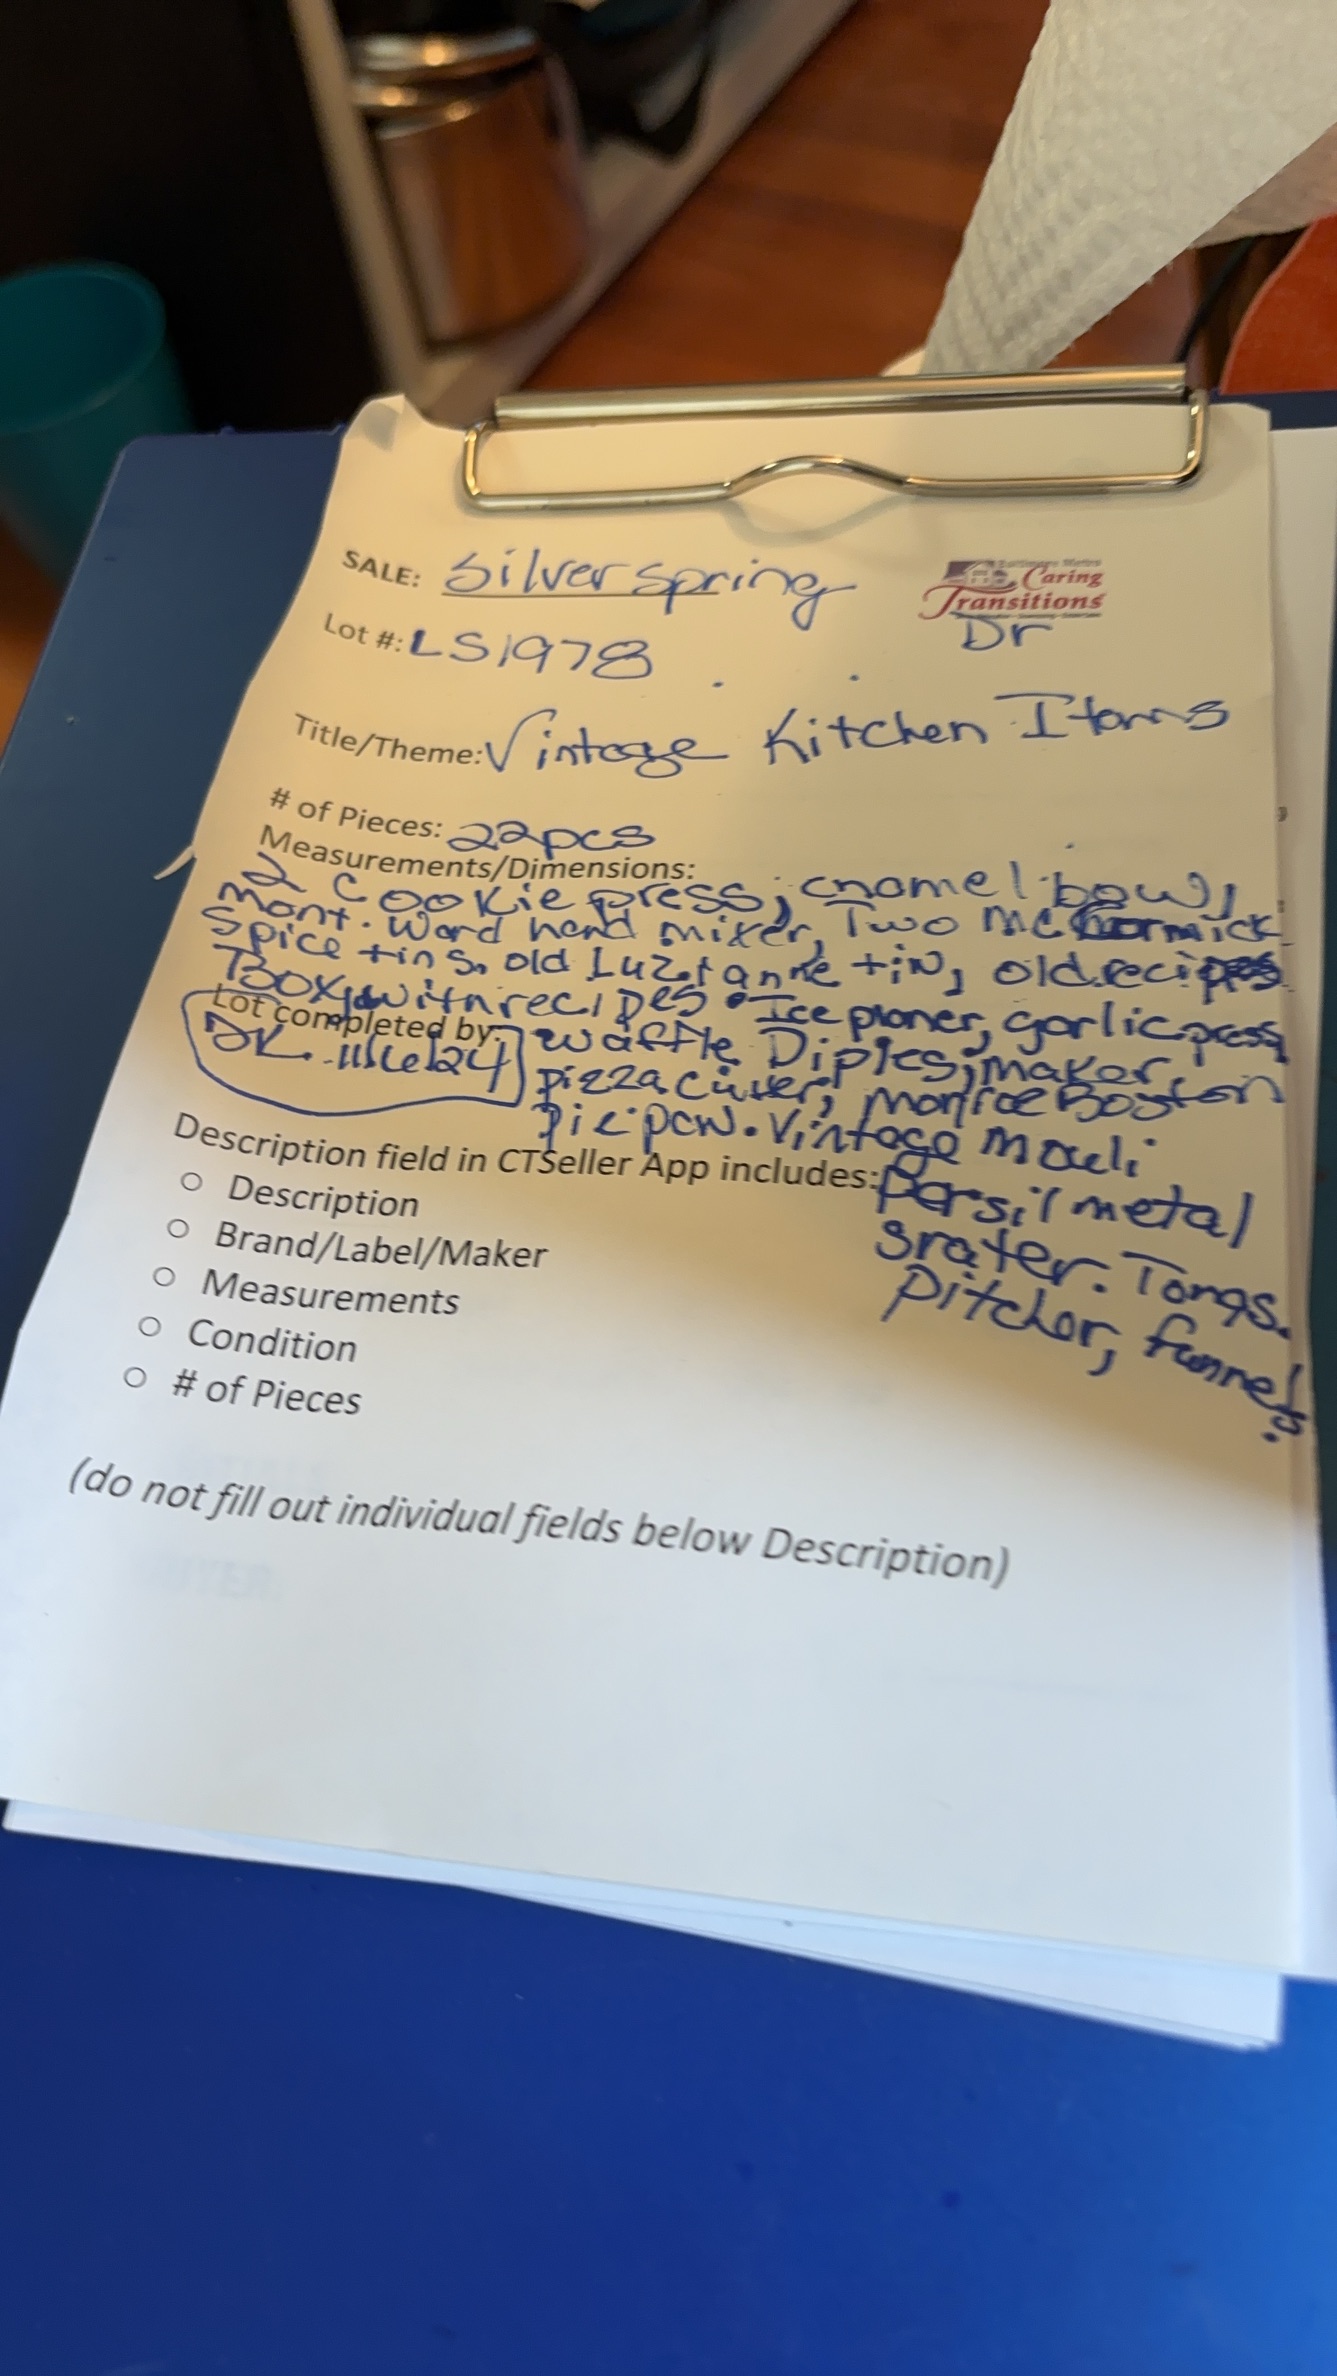 SALE: Silver Spring
Caring
Transitions
Dr
Lot #: LS1978
Title/Theme: Vintage Kitchen Items
# of Pieces: 22pcs
Measurements/Dimensions:
2 Cookie press, enamel bowl,
Mont. Ward hand mixer, Two McCormick
Spice tins. old Luzianne tin, old recipes
Box, with recipes. Ice planer, garlic press
Lot completed by:
DK.
waffle Diples, maker,
pizza cutter, Monroe Boston
pie pan. Vintage Mouli
Description field in CTSeller App includes:
Parsil metal
Srater. Tongs.
Pitcher, funnels.
○ Description
○ Brand/Label/Maker
○ Measurements
○ Condition
○ # of Pieces
(do not fill out individual fields below Description)